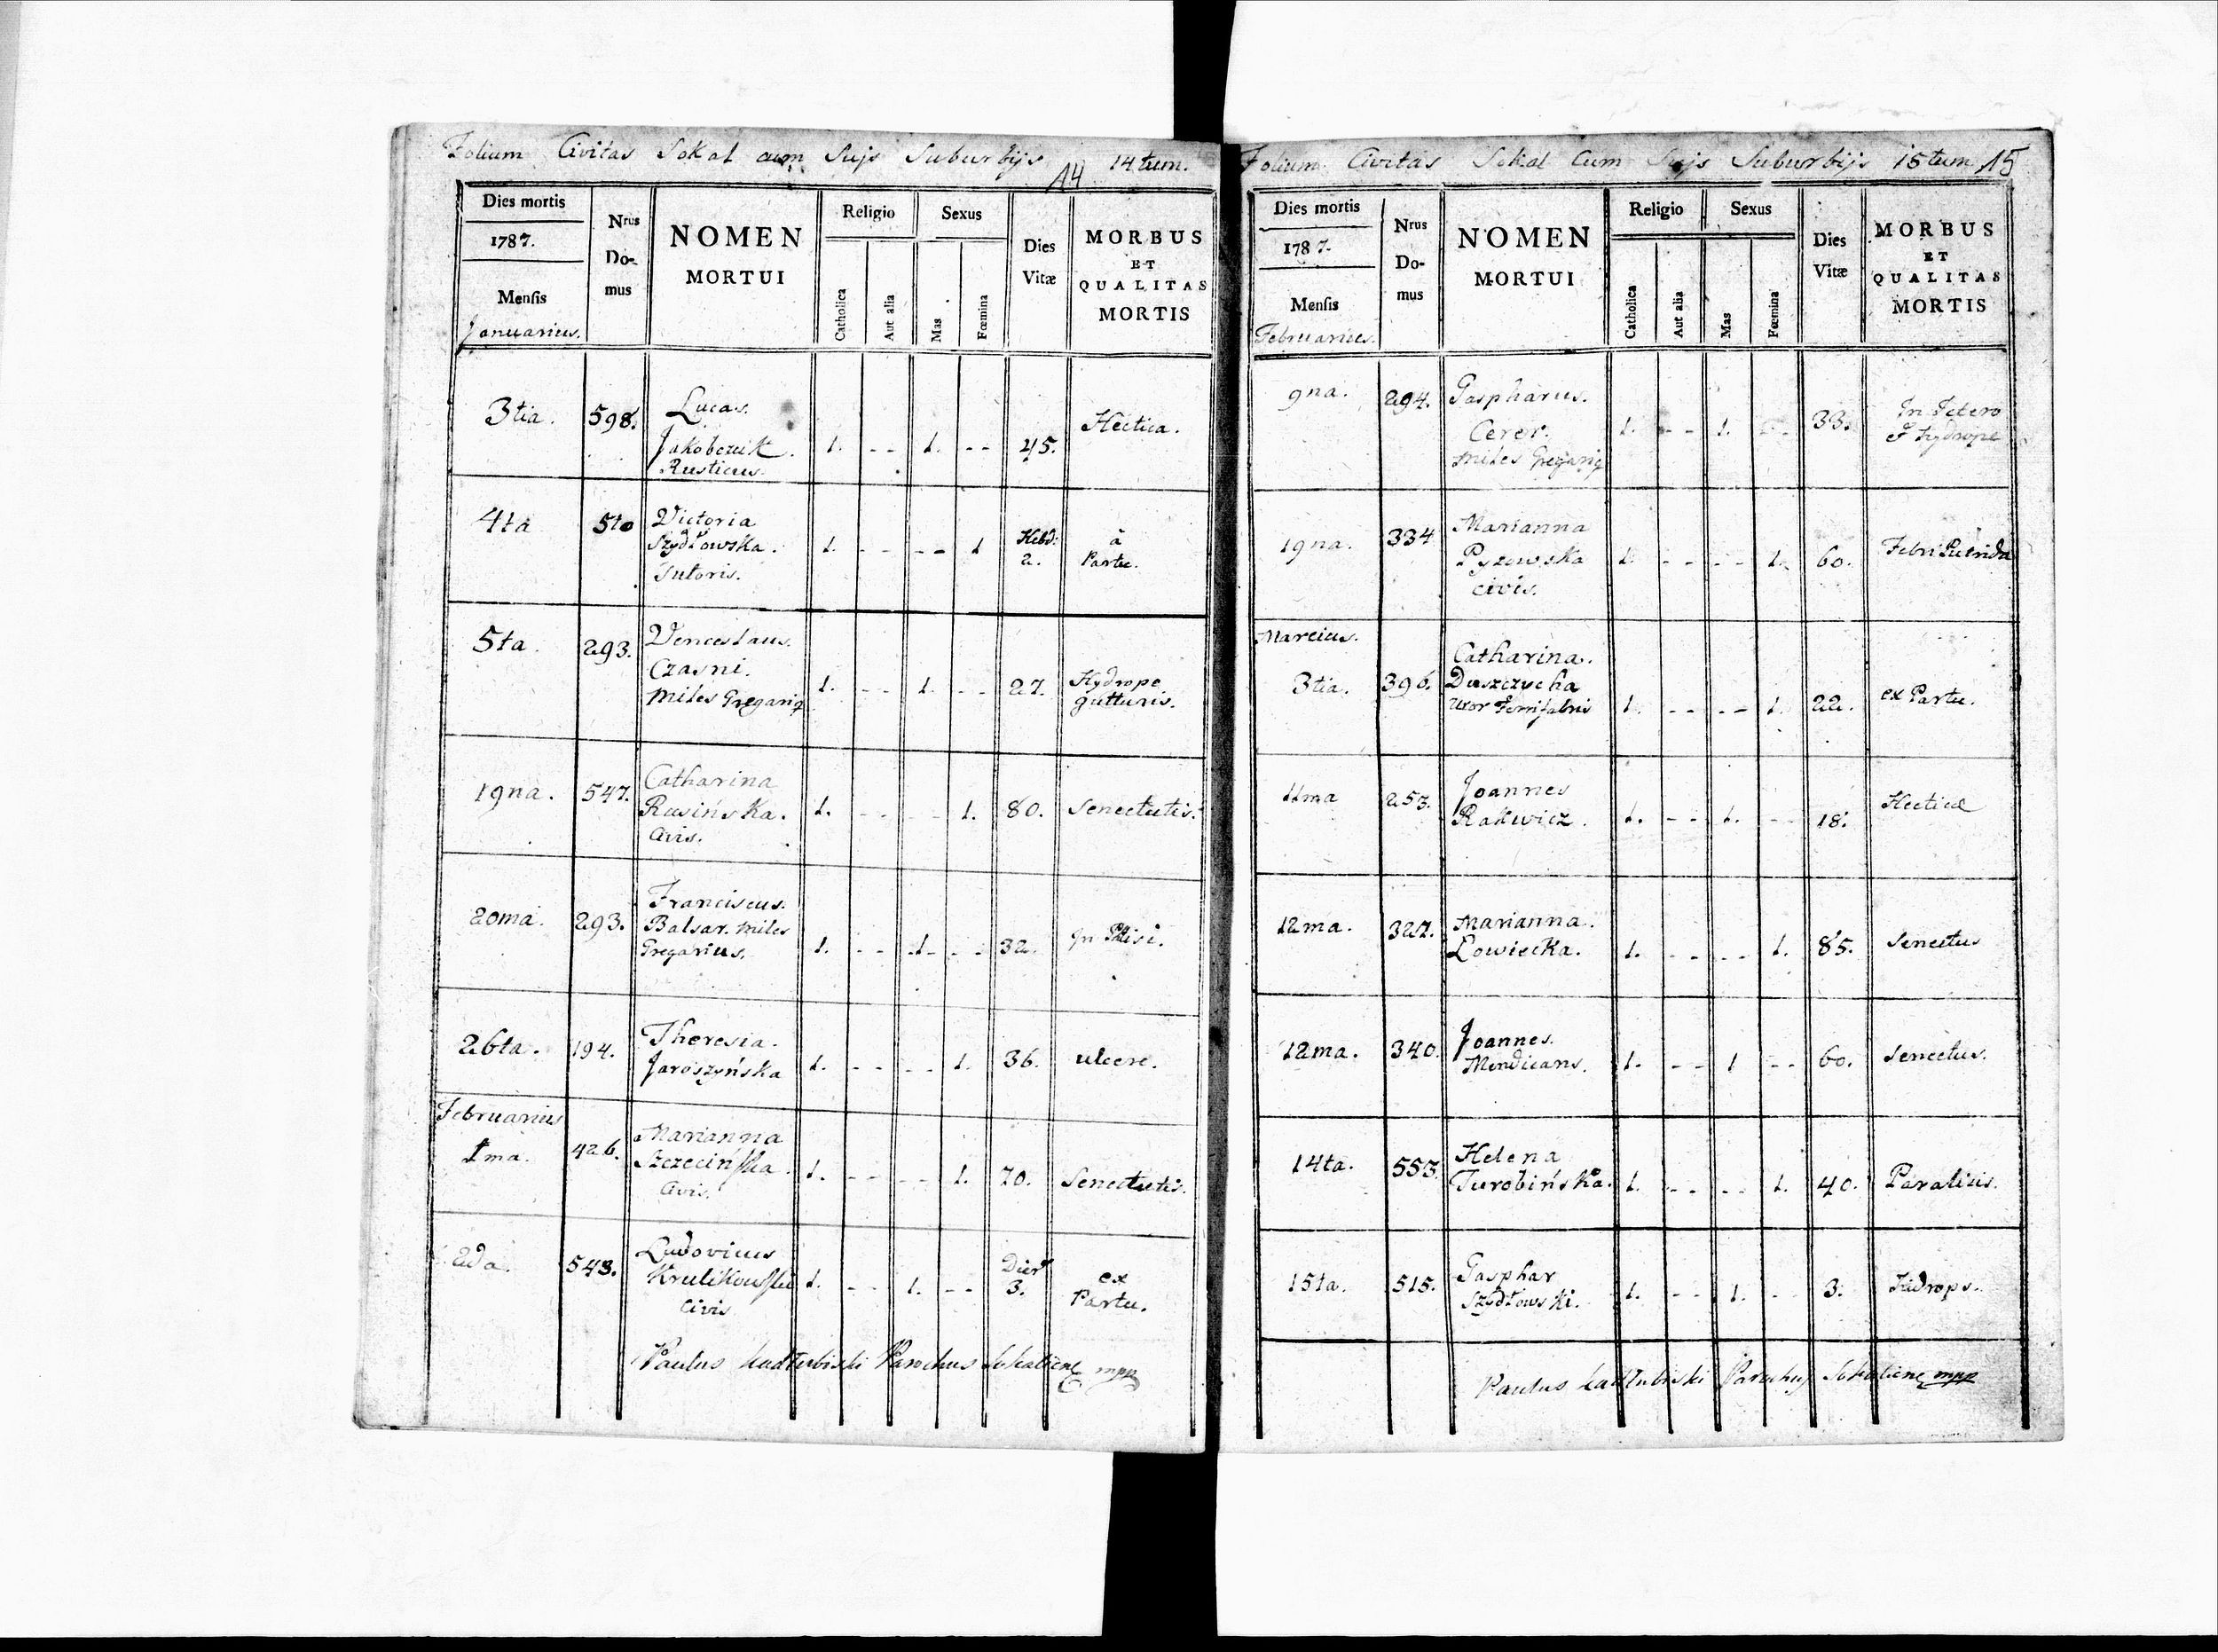 Folium Civitas Sokal cum Sujs Suburbijs 14tum.
14
Dies mortis
1787.
Mensis
Januarius.
Nrus Do- mus
NOMEN MORTUI
Religio
Catholica
Aut alia
Sexus
Mas
Fœmina
Dies Vitæ
MORBUS ET QUALITAS MORTIS
3tia. 598. Lucas. Jakobczuk. Rusticus. 1. - - 1. - - 45. Hectica.
4ta 510 Victoria Szydłowska. Sutoris. 1. - - - - 1 Hebd: 2. à Partu.
5ta. 293. Venceslaus. Czasni. Miles Gregariq 1. - - 1. - - 27. Hydrope gutturis.
19na. 547. Catharina Rusińska. Civis. 1. - - - - 1. 80. Senectutis.
20ma. 293. Franciscus. Balsar. Miles Gregarius. 1. - - 1. - - 32. In Ptisi.
26ta. 194. Theresia. Jaroszyńska 1. - - - - 1. 36. ulcere.
Februarius
1ma. 426. Marianna Szczecińska. Civis. 1. - - - - 1. 70. Senectutis.
2da. 543. Ludovicus Krulikowski Civis 1. - - 1. - - Dier 3. ex Partu.
Paulus Kadłubiski Parochus Sokaliens mpp
Folium Civitas Sokal Cum Sujs Suburbijs 15tum 15
Dies mortis
1787.
Mensis
Februarius.
Nrus Do- mus
NOMEN MORTUI
Religio
Catholica
Aut alia
Sexus
Mas
Fœmina
Dies Vitæ
MORBUS ET QUALITAS MORTIS
9na. 294. Gaspharus. Cerer. Miles Gregariq 1. - - 1. - - 33. In Ictero et hydrope
19na. 334 Marianna Pyzowska civis. 1. - - - - 1. 60. Febri Putrida
Marcius.
3tia. 396. Catharina. Duszczycha Uxor Ferrifabris 1. - - - - 1. 22. ex Partu.
11ma 253. Joannes Rakwicz. 1. - - 1. - - 18. Hecticæ
12ma. 327. Marianna. Łowiecka. 1. - - - - 1. 85. Senectus
12ma. 340. Joannes. Mendicans. 1. - - 1 - - 60. Senectus.
14ta. 553. Helena Turobińska. 1. - - - - 1. 40. Paralisis.
15ta. 515. Gasphar Szydłowski. 1. - - 1. - - 3. Hidrops.
Paulus Kadłubiski Parochus Sokaliens mpp